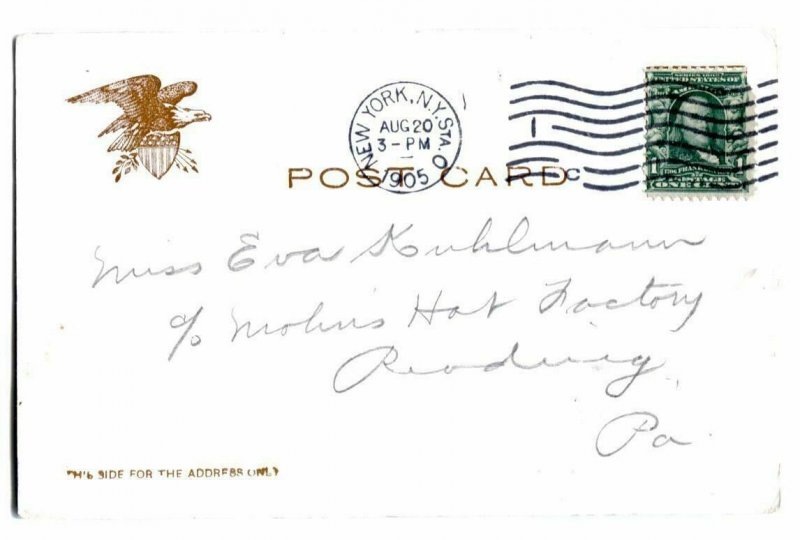 NEW YORK, N.Y. STA. O
AUG 20
3-PM
1905
1
C
SERIES 1902
UNITED STATES OF
AMERICA
1 1
FRANKLIN
POSTAGE
ONE CENT
POST CARD
Miss Eva Kuhlmann
c/o Mohn's Hat Factory
Reading
Pa.
THIS SIDE FOR THE ADDRESS ONLY